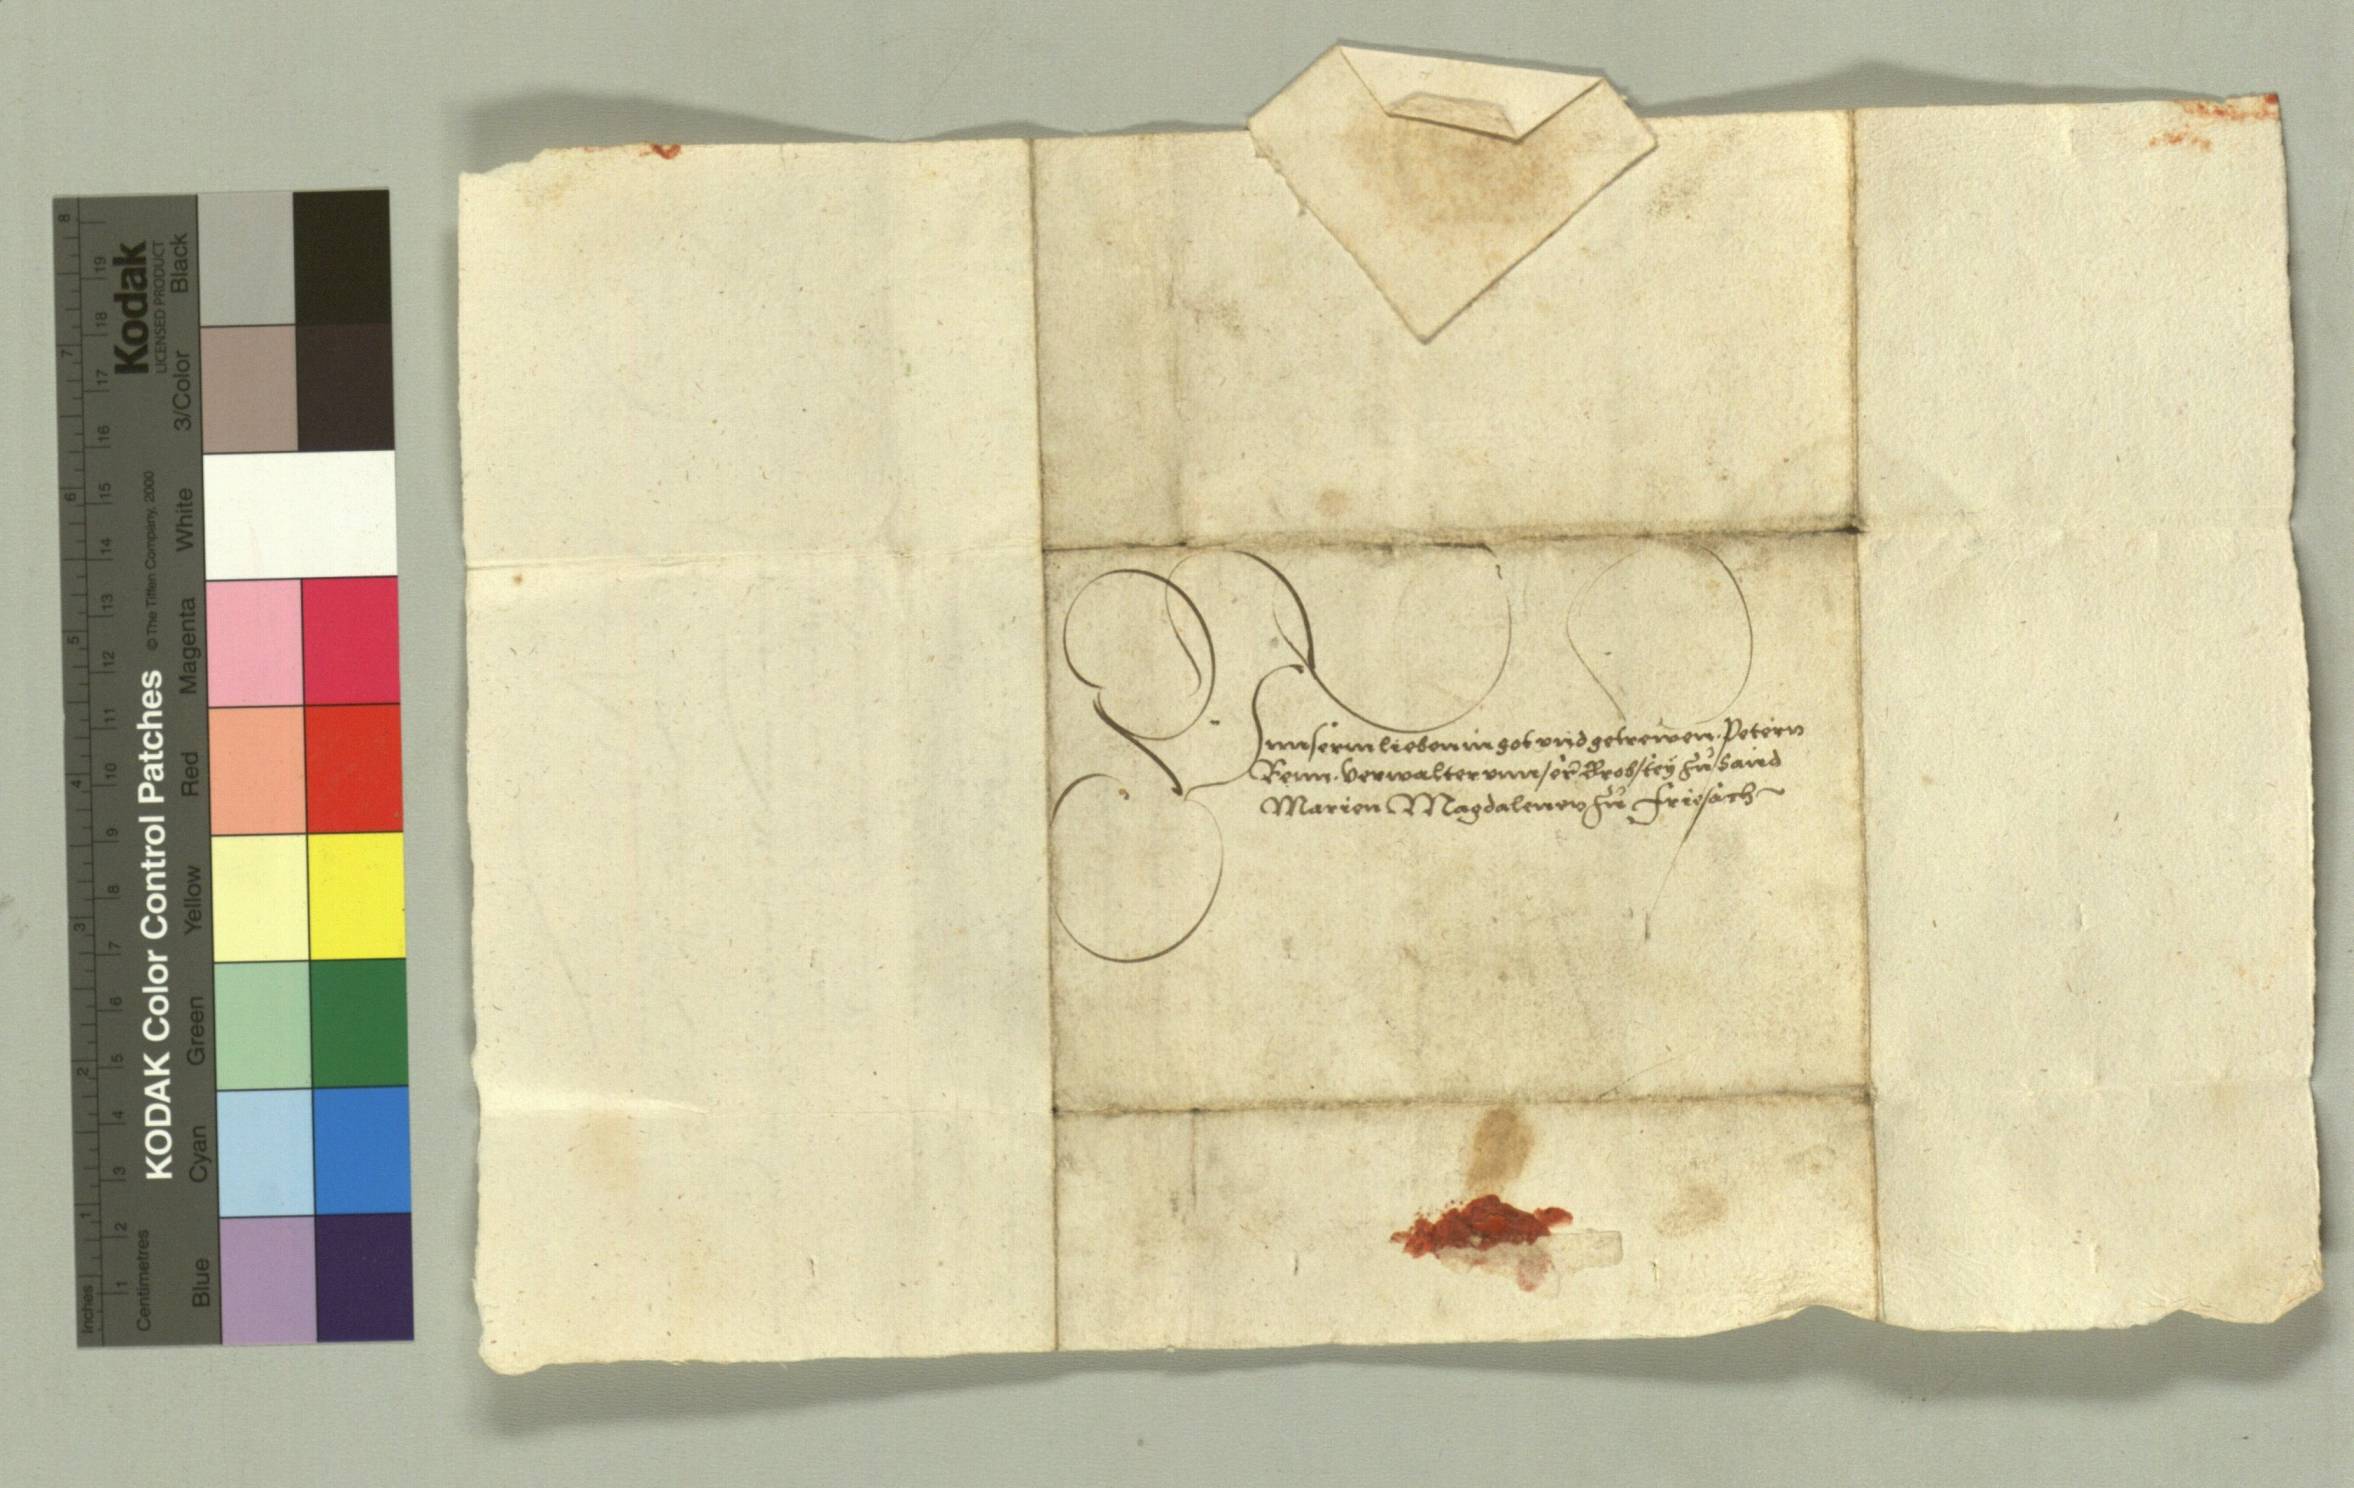 Unnserm lieben in got vnd getrewen. Petern
Renn. Verwalter vnnser Brobstey zu Sand
Marien Magdalenen zu Friesach
KODAK Color Control Patches
© The Tiffen Company, 2000
Kodak
LICENSED PRODUCT
Inches
1
2
3
4
5
6
7
8
Centimetres
1
2
3
4
5
6
7
8
9
10
11
12
13
14
15
16
17
18
19
Blue
Cyan
Green
Yellow
Red
Magenta
White
3/Color
Black